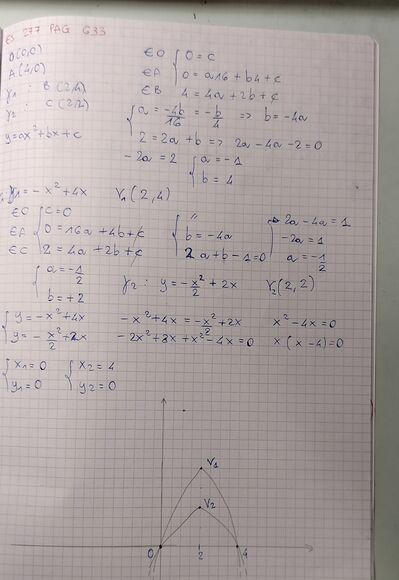 ES 277 PAG 633
O(0,0)
A(4,0)
γ1 : B(2,4)
γ2 : C(2,2)
y=ax²+bx+c
∈O { 0=c
∈A { 0=a16+b4+c
∈B { 4=4a+2b+c
{ a=-4b/16=-b/4 => b=-4a
2=2a+b => 2a-4a-2=0
-2a=2 { a=-1
b=4
γ1=-x²+4x V1(2,4)
∈O { c=0
∈A { 0=16a+4b+c
∈C { 2=4a+2b+c
{ "
b=-4a
2a+b-1=0
{ 2a-4a=1
-2a=1
a=-1/2
{ a=-1/2
b=+2
γ2 : y=-x²/2+2x V2(2,2)
{ y=-x²+4x -x²+4x=-x²/2+2x x²-4x=0
{ y=-x²/2+2x -2x²+8x+x²-4x=0 x(x-4)=0
{ x1=0 { x2=4
{ y1=0 { y2=0
V1
V2
0 2 4